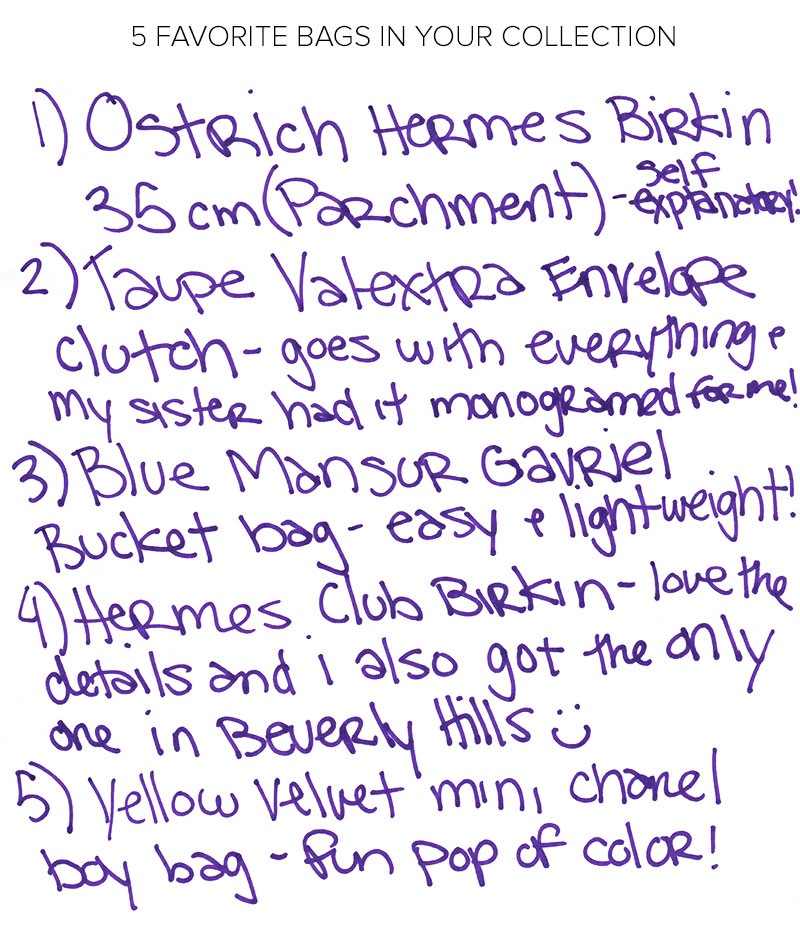 5 FAVORITE BAGS IN YOUR COLLECTION
1) Ostrich Hermes Birkin
35 cm (Parchment) - self explanatory!
2) Taupe Valextra Envelope
clutch - goes with everything &
my sister had it monogramed for me!
3) Blue Mansur Gavriel
Bucket bag - easy & lightweight!
4) Hermes Club Birkin - love the
details and i also got the only
one in Beverly Hills :)
5) Yellow Velvet mini chanel
boy bag - fun pop of color!